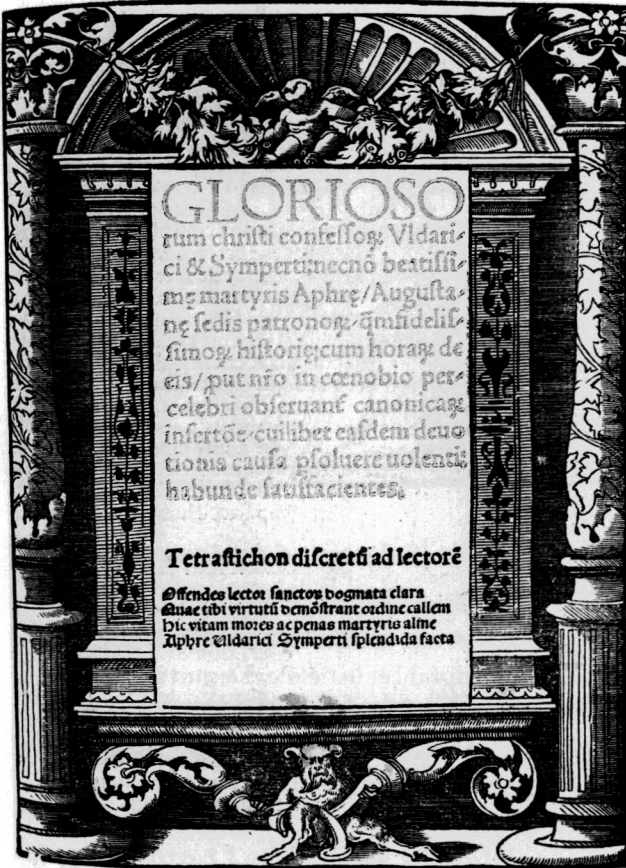 GLORIOSO
rum christi confessoꝝ Vldari-
ci & Symperti;necnō beatissi-
mę martyris Aphrę/Augusta-
nę sedis patronoꝝ/q̄mfidelis-
simoꝝ historię;cum horaꝝ de
eis/ꝓut nr̄o in cœnobio per-
celebri obseruant̄ canonicaꝝ
insertōe-cuilibet easdem deuo
tionis causa ꝑsoluere uolenti;
habunde satisfacientes.
Tetrastichon discretū ad lectorē
Offendes lector sanctoꝝ dogmata clara
Quae tibi virtutū demōstrant ordine callem
Hic vitam mores ac penas martyris alme
Aphre Uldarici Symperti splendida facta